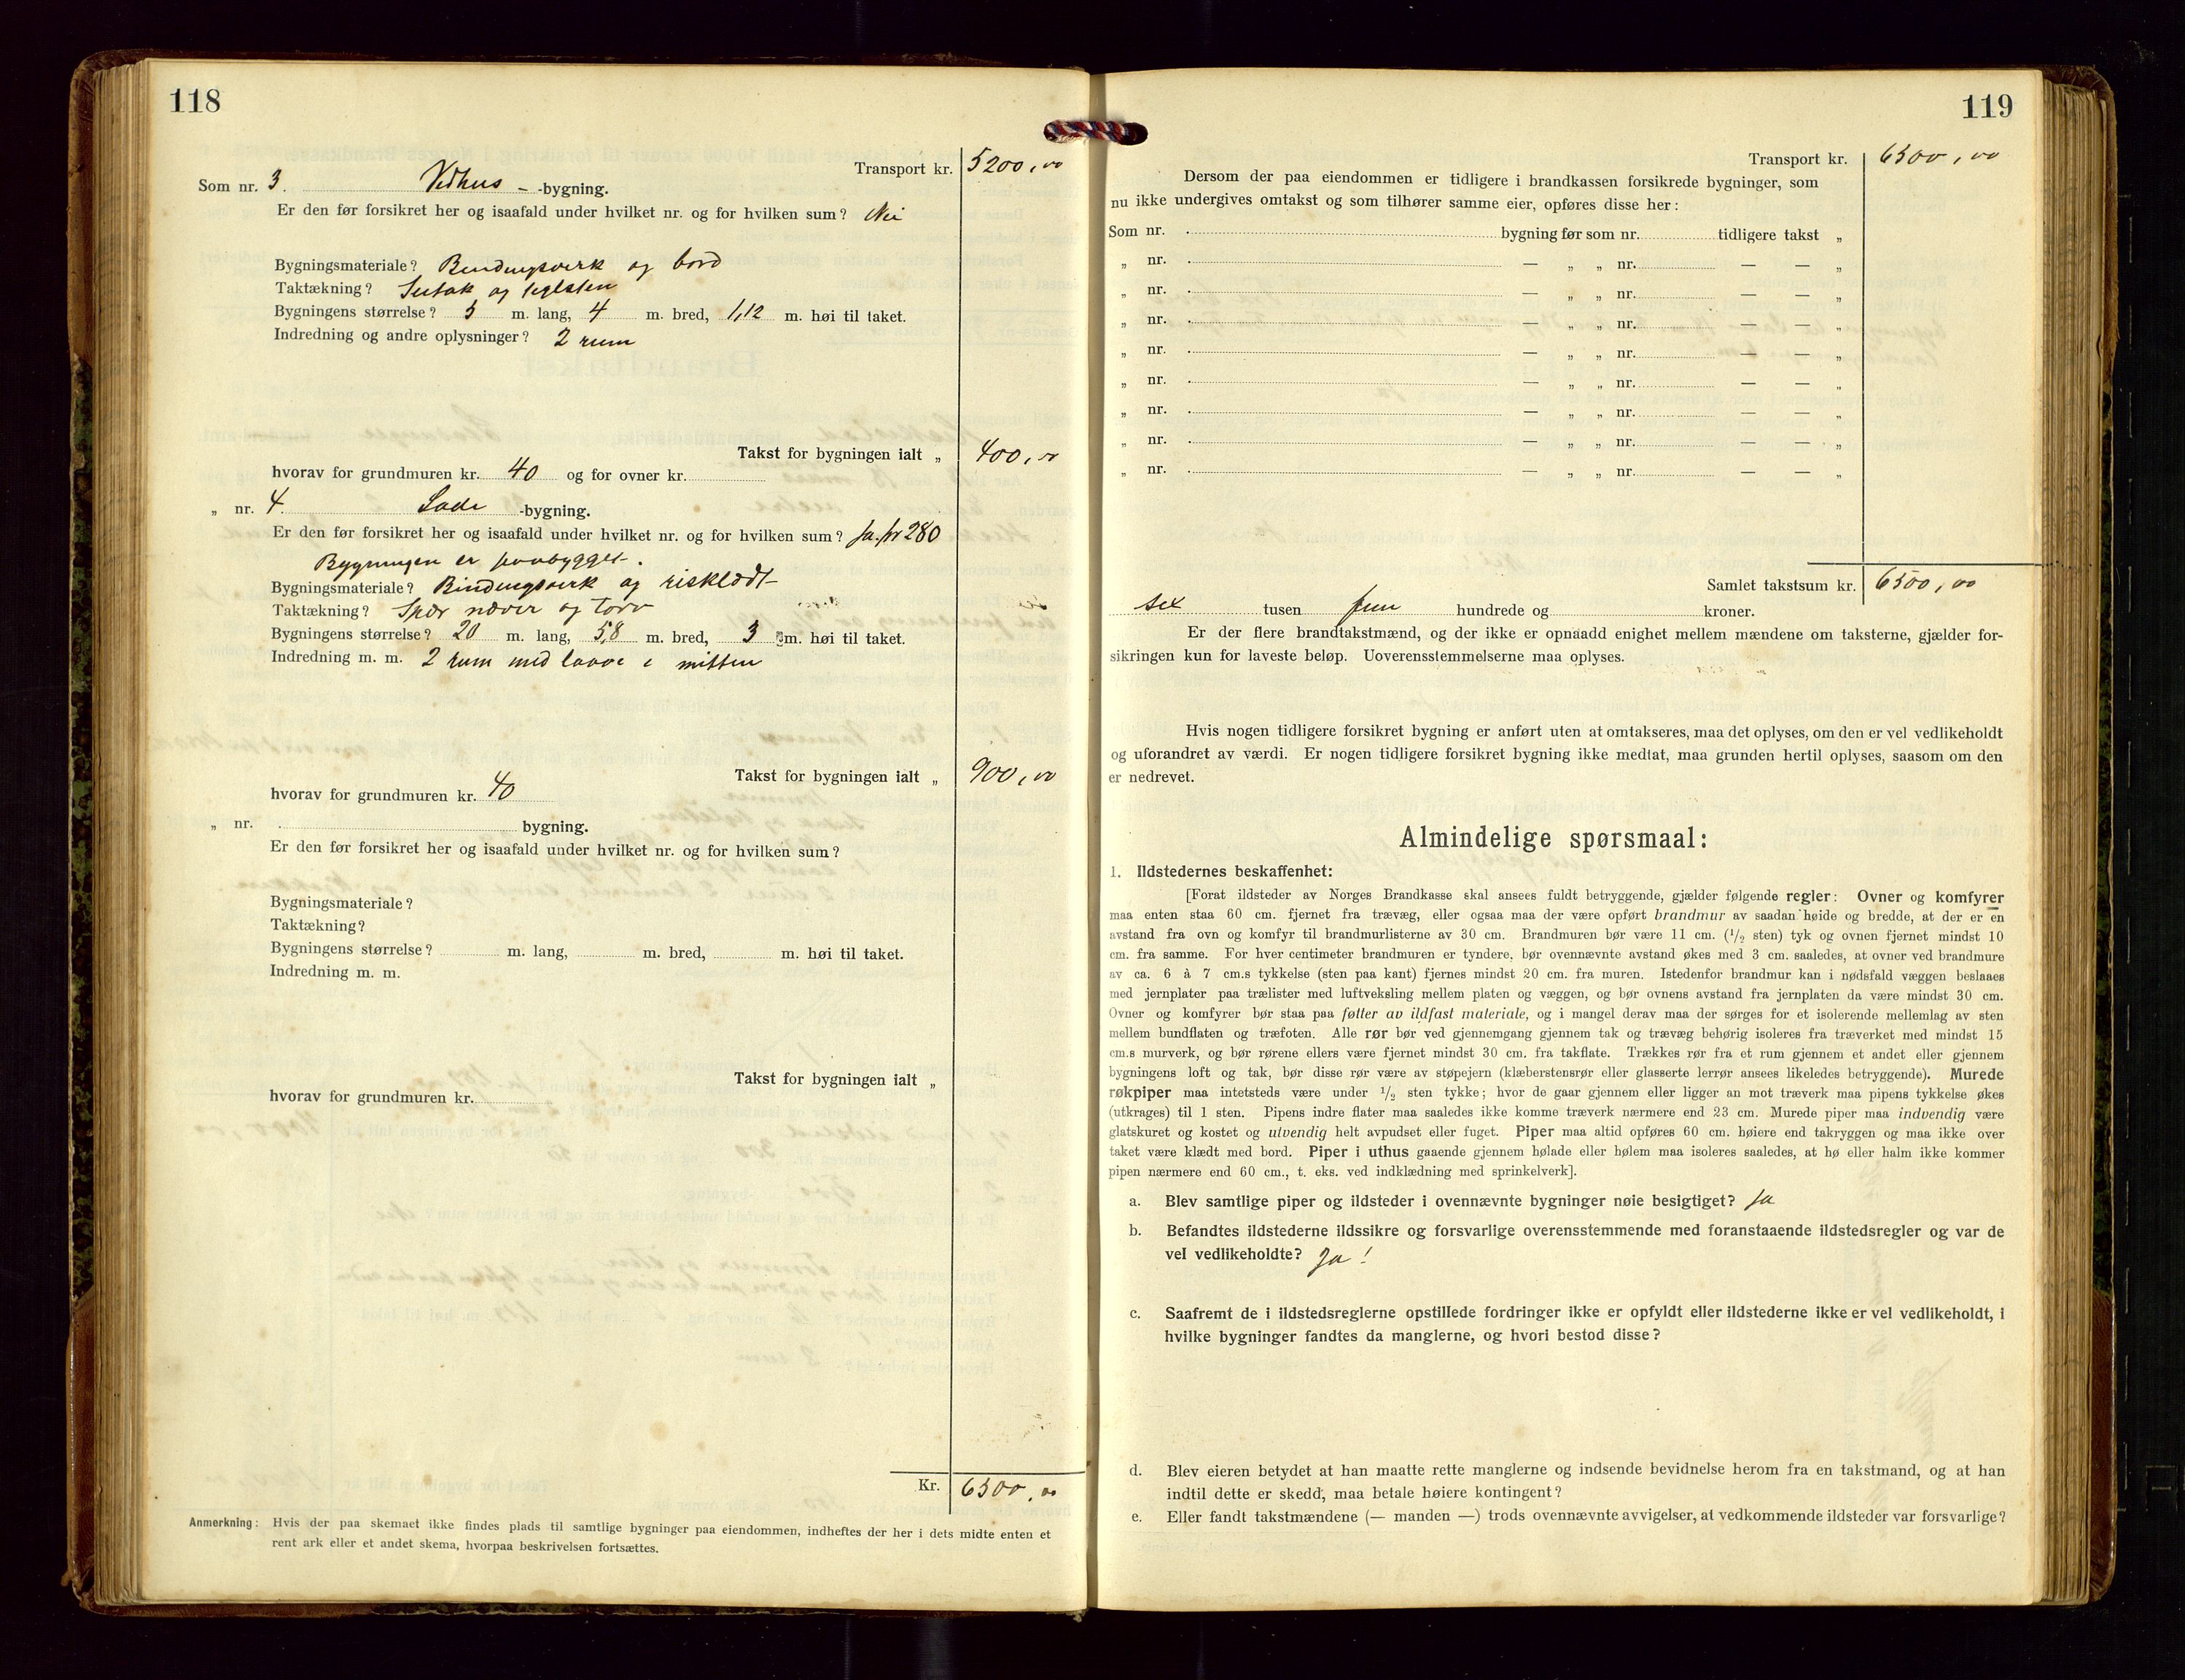 118
Transport kr. 5200,00
Som nr. 3. Vedhus - -bygning.
Er den før forsikret her og isaafald under hvilket nr. og for hvilken sum? Nei
Bygningsmateriale? Bindingsverk og bord
Taktækning? Sutak og teglsten
Bygningens størrelse? 5 m. lang, 4 m. bred, 1,12 m. høi til taket.
Indredning og andre oplysninger? 2 rum
Takst for bygningen ialt „ 400,00
hvorav for grundmuren kr. 40 og for ovner kr.
„ nr. 4. Lade -bygning.
Er den før forsikret her og isaafald under hvilket nr. og for hvilken sum? Ja. kr 280
Bygningen er paabygget.
Bygningsmateriale? Bindingsverk og risklædt
Taktækning? Spær næver og torv
Bygningens størrelse? 20 m. lang, 5,8 m. bred, 3 m. høi til taket.
Indredning m. m. 2 rum med laave i mitten
Takst for bygningen ialt „ 900,00
hvorav for grundmuren kr. 40
„ nr. bygning.
Er den før forsikret her og isaafald under hvilket nr. og for hvilken sum?
Bygningsmateriale?
Taktækning?
Bygningens størrelse? m. lang, m. bred, m. høi til taket.
Indredning m. m.
Takst for bygningen ialt „
hvorav for grundmuren kr.
Kr. 6500,00
Anmerkning: Hvis der paa skemaet ikke findes plads til samtlige bygninger paa eiendommen, indheftes der her i dets midte enten et
rent ark eller et andet skema, hvorpaa beskrivelsen fortsættes.
119
Transport kr. 6500,00
Dersom der paa eiendommen er tidligere i brandkassen forsikrede bygninger, som
nu ikke undergives omtakst og som tilhører samme eier, opføres disse her:
Som nr. bygning før som nr. tidligere takst „
„ nr. — „ „ nr. — — „
„ nr. — „ „ nr. — — „
„ nr. — „ „ nr. — — „
„ nr. — „ „ nr. — — „
„ nr. — „ „ nr. — — „
„ nr. — „ „ nr. — — „
„ nr. — „ „ nr. — — „
„ nr. — „ „ nr. — — „
Samlet takstsum kr. 6500,00
sex tusen fem hundrede og kroner.
Er der flere brandtakstmænd, og der ikke er opnaadd enighet mellem mændene om taksterne, gjælder for-
sikringen kun for laveste beløp. Uoverensstemmelserne maa oplyses.
Hvis nogen tidligere forsikret bygning er anført uten at omtakseres, maa det oplyses, om den er vel vedlikeholdt
og uforandret av værdi. Er nogen tidligere forsikret bygning ikke medtat, maa grunden hertil oplyses, saasom om den
er nedrevet.
Almindelige spørsmaal:
1. Ildstedernes beskaffenhet:
[Forat ildsteder av Norges Brandkasse skal ansees fuldt betryggende, gjælder følgende regler: Ovner og komfyrer
maa enten staa 60 cm. fjernet fra trævæg, eller ogsaa maa der være opført brandmur av saadan høide og bredde, at der er en
avstand fra ovn og komfyr til brandmurlisterne av 30 cm. Brandmuren bør være 11 cm. (1/2 sten) tyk og ovnen fjernet mindst 10
cm. fra samme. For hver centimeter brandmuren er tyndere, bør ovennævnte avstand økes med 3 cm. saaledes, at ovner ved brandmure
av ca. 6 à 7 cm.s tykkelse (sten paa kant) fjernes mindst 20 cm. fra muren. Istedenfor brandmur kan i nødsfald væggen beslaaes
med jernplater paa trælister med luftveksling mellem platen og væggen, og bør ovnens avstand fra jernplaten da være mindst 30 cm.
Ovner og komfyrer bør staa paa føtter av ildfast materiale, og i mangel derav maa der sørges for et isolerende mellemlag av sten
mellem bundflaten og træfoten. Alle rør bør ved gjennemgang gjennem tak og trævæg behørig isoleres fra træverket med mindst 15
cm.s murverk, og bør rørene ellers være fjernet mindst 30 cm. fra takflate. Trækkes rør fra et rum gjennem et andet eller gjennem
bygningens loft og tak, bør disse rør være av støpejern (klæberstensrør eller glasserte lerrør ansees likeledes betryggende). Murede
røkpiper maa intetsteds være under 1/2 sten tykke; hvor de gaar gjennem eller ligger an mot træverk maa pipens tykkelse økes
(utkrages) til 1 sten. Pipens indre flater maa saaledes ikke komme træverk nærmere end 23 cm. Murede piper maa indvendig være
glatskuret og kostet og utvendig helt avpudset eller fuget. Piper maa altid opføres 60 cm. høiere end takryggen og maa ikke over
taket være klædt med bord. Piper i uthus gaaende gjennem hølade eller hølem maa isoleres saaledes, at hø eller halm ikke kommer
pipen nærmere end 60 cm., t. eks. ved indklædning med sprinkelverk].
a. Blev samtlige piper og ildsteder i ovennævnte bygninger nøie besigtiget? Ja
b. Befandtes ildstederne ildssikre og forsvarlige overensstemmende med foranstaaende ildstedsregler og var de
vel vedlikeholdte? Ja!
c. Saafremt de i ildstedsreglerne opstillede fordringer ikke er opfyldt eller ildstederne ikke er vel vedlikeholdt, i
hvilke bygninger fandtes da manglerne, og hvori bestod disse?
d. Blev eieren betydet at han maatte rette manglerne og indsende bevidnelse herom fra en takstmand, og at han
indtil dette er skedd, maa betale høiere kontingent?
e. Eller fandt takstmændene (— manden —) trods ovennævnte avvigelser, at vedkommende ildsteder var forsvarlige?